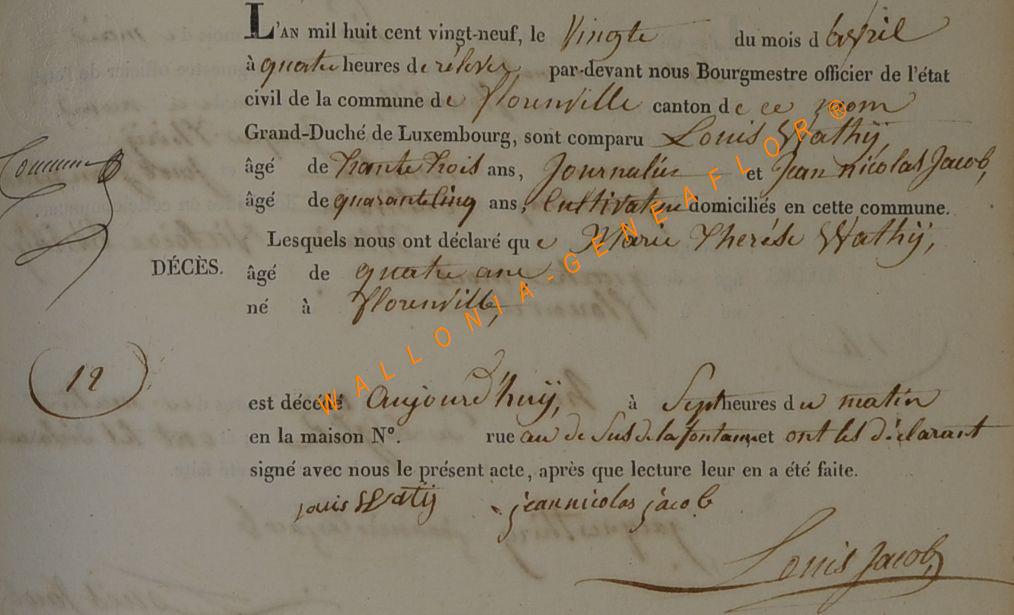 L'AN mil huit cent vingt-neuf, le Vingte du mois d'avril
à quatre heures de relevée, par-devant nous Bourgmestre officier de l'état
civil de la commune de florenville canton de ce nom
Grand-Duché de Luxembourg, sont comparu Louis Wathÿ
âgé de trante trois ans, Journalier et Jean nicolas Jacob,
âgé de quarante cinq ans, Cultivateur domiciliés en cette commune.
Lesquels nous ont déclaré que Marie Therése Wathÿ,
DÉCÈS.
âgé de quatre ans
né à florenville,
12
est décédé aujourd'huÿ, à Sept heures du matin
en la maison N°. rue au de Sus de la fontaine et ont les déclarant
signé avec nous le présent acte, après que lecture leur en a été faite.
Louis Watÿ jean nicolas jacob
Louis Jacob
WALLONIA-GENEAFLOR ®